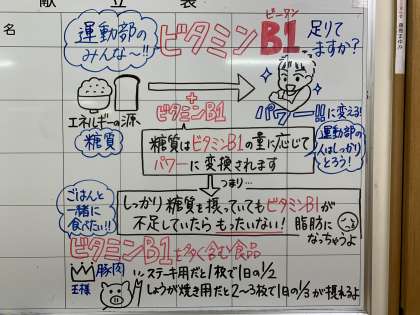 献立表
名
運動部の
みんな〜!!
ビタミンB1
ビータン
足りて
ますか?
+
ビタミンB1
エネルギーの源
糖質
パワー!!に変える!
糖質はビタミンB1の量に応じて
パワーに変換されます
運動部の
人はしっかり
とろう!
つまり…
ごはんと
一緒に
食べたい!!
しっかり糖質を摂っていてもビタミンB1が
不足していたらもったいない!
脂肪に
なっちゃうよ
ビタミンB1を多く含む食品
王様
豚肉
ステーキ用だと1枚で1日の1/2
しょうが焼き用だと2〜3枚で1日の1/3が摂れるよ